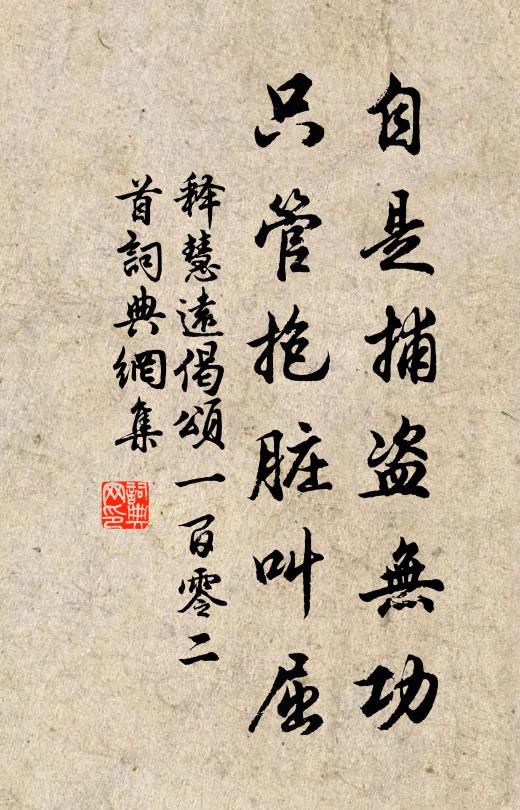 自是捕盗無功
只管抱脏叫屈
释慧遠偈頌一百零二
首詞典網集
詞典
网印